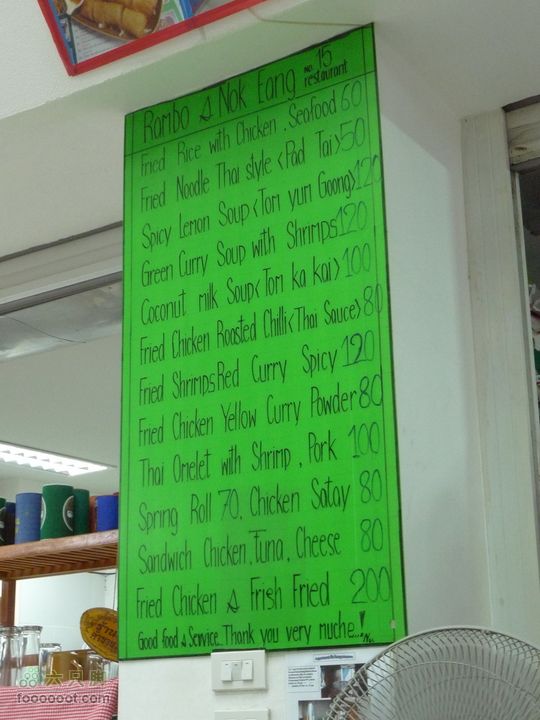 Rambo & Nok Eang no. 15 restaurant
Fried Rice with Chicken, Seafood 60
Fried Noodle Thai style <Pad Tai> 50
Spicy Lemon Soup <Tom yum Goong> 120
Green Curry Soup with Shrimps 120
Coconut milk Soup <Tom ka kai> 100
Fried Chicken Roasted Chilli <Thai Sauce> 80
Fried Shrimps Red Curry Spicy 120
Fried Chicken Yellow Curry Powder 80
Thai Omelet with Shrimp, Pork 100
Spring Roll 70, Chicken Satay 80
Sandwich Chicken, Tuna, Cheese 80
Fried Chicken & Frish Fried 200
Good food & Service. Thank you very muche...!
六只脚
foooooot.com